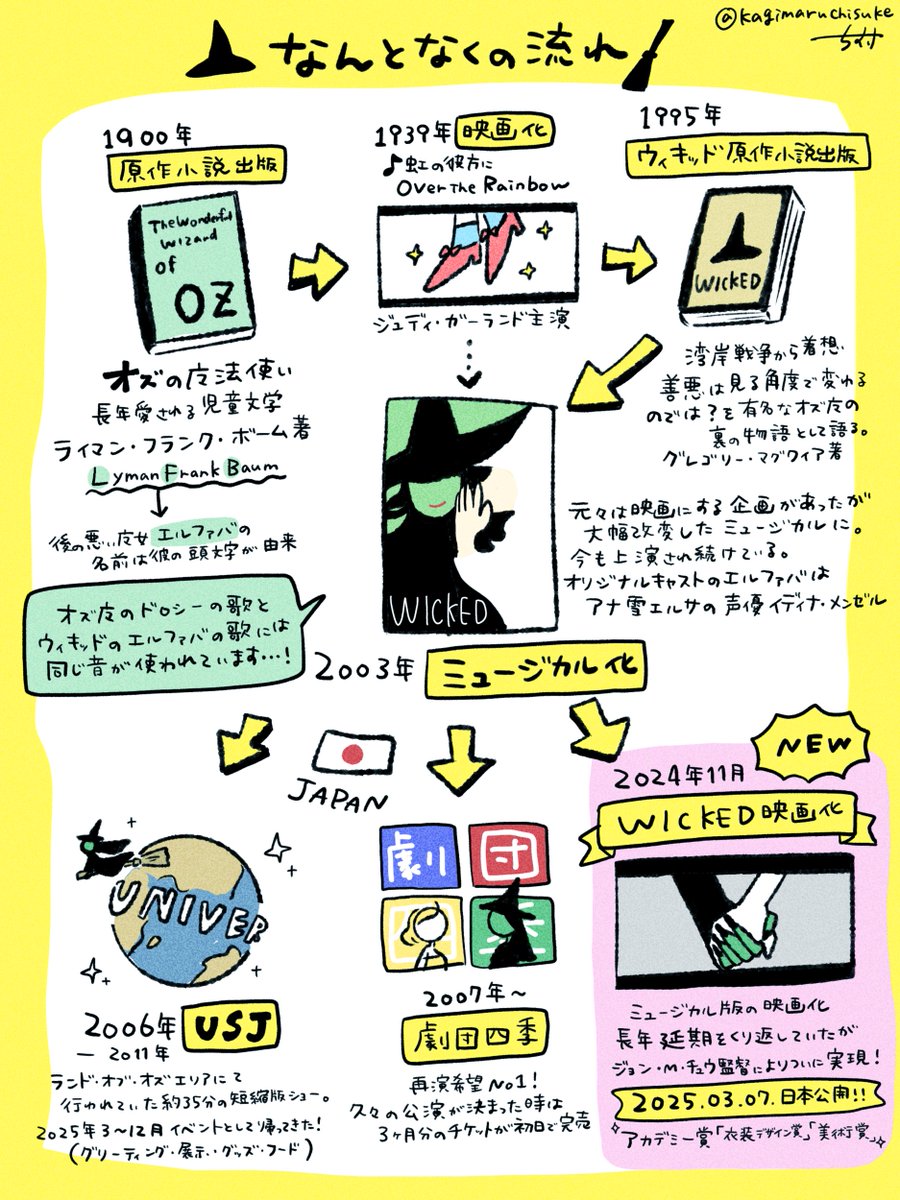 @kagimaruchisuke
なんとなくの流れ
1900年
原作小説出版
The Wonderful
Wizard
of
OZ
オズの魔法使い
長年愛される児童文学
ライマン・フランク・ボーム著
Lyman Frank Baum
後の悪い魔女 エルファバの
名前は彼の頭文字が由来
1939年 映画化
♪虹の彼方に
Over The Rainbow
ジュディ・ガーランド主演
1995年
ウィキッド原作小説出版
WICKED
湾岸戦争から着想
善悪は見る角度で変わる
のでは?を有名なオズ魔の
裏の物語として語る。
グレゴリー・マグワイア著
WICKED
元々は映画にする企画があったが
大幅改変したミュージカルに。
今も上演され続けている。
オリジナルキャストのエルファバは
アナ雪エルサの声優イディナ・メンゼル
オズ魔のドロシーの歌と
ウィキッドのエルファバの歌には
同じ音が使われています…!
2003年 ミュージカル化
JAPAN
UNIVER
2006年 USJ
ー 2011年
ランド・オブ・オズエリアにて
行われていた約35分の短縮版ショー。
2025年3〜12月イベントとして帰ってきた!
(グリーティング・展示・グッズ・フード)
劇団
季
2007年〜
劇団四季
再演希望No1!
久々の公演が決まった時は
3ヶ月分のチケットが初日で完売
NEW
2024年11月
WICKED映画化
ミュージカル版の映画化
長年延期をくり返していたが
ジョン・M・チュウ監督によりついに実現!
2025.03.07.日本公開!!
アカデミー賞「衣装デザイン賞」「美術賞」